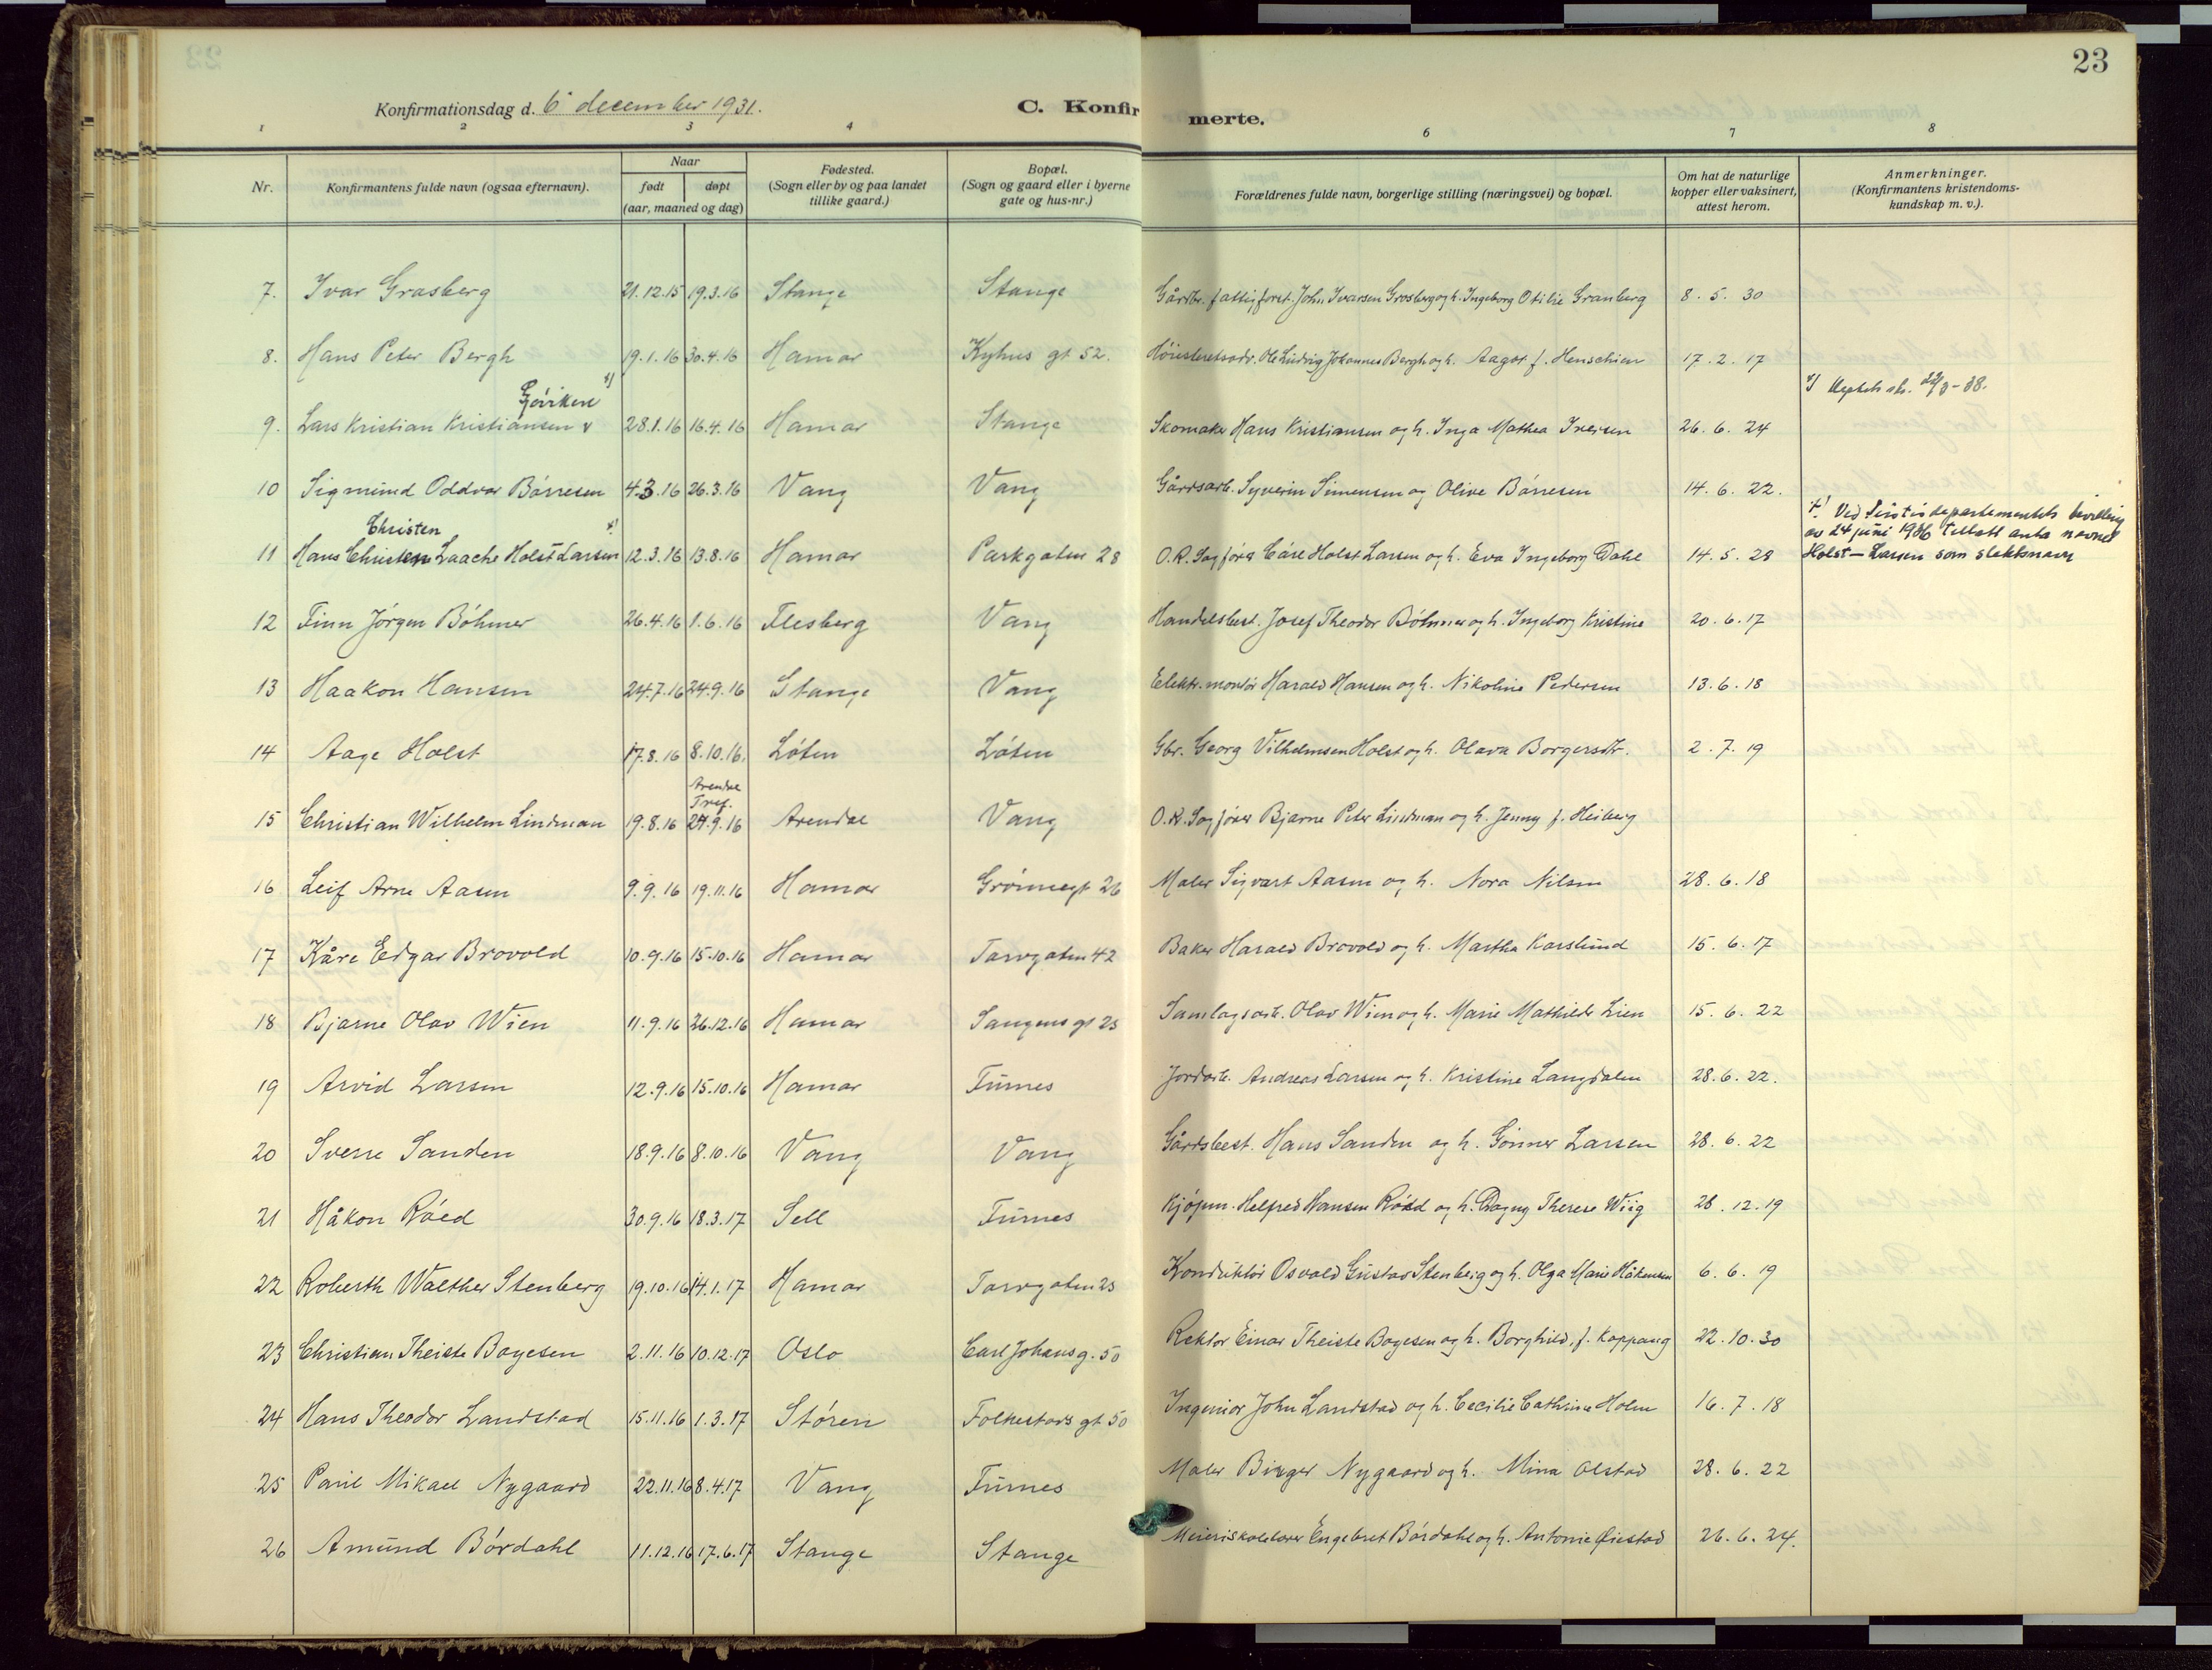 23
Konfirmationsdag d. 6 december 1931.
C. Konfirmerte.
1 2 3 4 6 7 8
Nr.
Konfirmantens fulde navn (ogsaa efternavn).
Naar
født
døpt
(aar, maaned og dag)
Fødested.
(Sogn eller by og paa landet
tillike gaard.)
Bopæl.
(Sogn og gaard eller i byerne
gate og hus-nr.)
Forældrenes fulde navn, borgerlige stilling (næringsvei) og bopæl.
Om hat de naturlige
kopper eller vaksinert,
attest herom.
Anmerkninger.
(Konfirmantens kristendoms-
kundskap m. v.).
7. Ivar Grasberg 21.12.15 19.3.16 Stange Stange Gårdbr. John Ivarsen Grosberg og h. Ingeborg Otilie Granberg 8. 5. 30
8. Hans Peter Bergh 19.1.16 30.4.16 Hamar Kyhus gt 52. Høiesteretsadv. Ole Ludvig Johannes Bergh og h. Aagot f. Henschien 17. 2. 17
9. Lars Kristian Kristiansen 28.1.16 16.4.16 Hamar Stange Skomaker Hans Kristiansen og h. Inga Mathea Iversen 26. 6. 24
10 Sigmund Oddvar Børresen 4.3.16 26.3.16 Vang Vang Gårdsarb. Syverin Simensen og Olive Børresen 14. 6. 22.
Christen
x) Ved Justisdepartementets bevilling
av 24 juni 1936 tillatt anta navnet
Holst-Larsen som slektsnavn
11 Hans Christen Laache Holst Larsen 12.3.16 13.8.16 Hamar Parkgaten 28 O.R. Sagfører Cáre Holst Larsen og h. Eva Ingeborg Dahl 14. 5. 28
12 Finn Jørgen Böhmer 26.4.16 1.6.16 Flesberg Vang Handelsbest. Josef Theodor Böhmer og h. Ingeborg Kristine 20. 6. 17
13 Haakon Hansen 24.7.16 24.9.16 Stange Vang Elektr. montör Harald Hansen og h. Nikoline Pedersen 13. 6. 18
14 Aage Holst 17.8.16 8.10.16. Løten Løten Gbr. Georg Vilhelmsen Holst og h. Olava Borgersdtr. 2. 7. 19
Arendal
Tref.
15 Christian Wilhelm Lindman 19.8.16 24.9.16 Arendal Vang O.R. Sagfører Bjarne Peter Lindman og h. Jenny f. Heiberg
16 Leif Arne Aasen 9.9.16 19.11.16 Hamar Grønnegt 26 Maler Sigvart Aasen og h. Nora Nilsen 28. 6. 18
17 Kåre Edgar Brovold 10.9.16 15.10.16 Hamar Torvgaten 42 Baker Harald Brovold og h. Martha Karslund 15. 6. 17
18 Bjarne Olav Wien 11.9.16 26.12.16 Hamar Vangens gt 23 Samlagsarb. Olav Wien og h. Marie Mathilde Lien 15. 6. 22
19 Arvid Larsen 12.9.16 15.10.16 Hamar Furnes Jordarb. Andreas Larsen og h. Kristine Langdalen 28. 6. 22.
20 Sverre Sanden 18.9.16 8.10.16 Vang Vang Gårdsbest. Hans Sanden og h. Gunner Larsen 28. 6. 22
21 Håkon Røed 30.9.16 18.3.17 Sell Furnes Kjøpm. Helfred Hansen Røed og h. Dagny Therese Wiig 28. 12. 19
22 Roberth Walther Stenberg 19.10.16 14.1.17 Hamar Torvgaten 23 Konduktør Osvald Gustav Stenberg og h. Olga Marie Håkensen 6. 6. 19
23 Christian Theiste Boyesen 2.11.16 10.12.17 Oslo Carl Johans g. 50 Rektor Einar Theiste Boyesen og h. Borghild, f. Koppang 22. 10. 30
24 Hans Theodor Landstad 15.11.16 1.3.17 Støren Folkestads gt 50 Ingeniør John Landstad og h. Cecilie Cathrine Holm 16. 7. 18
25 Paul Mikael Nygaard 22.11.16 8.4.17 Vang Furnes Maler Birger Nygaard og h. Mina Olstad 28. 6. 22
26 Amund Børdahl 11.12.16 17.6.17 Stange Stange Meieriskolelærer Engebret Børdahl og h. Antonie Øiestad 26. 6. 24.